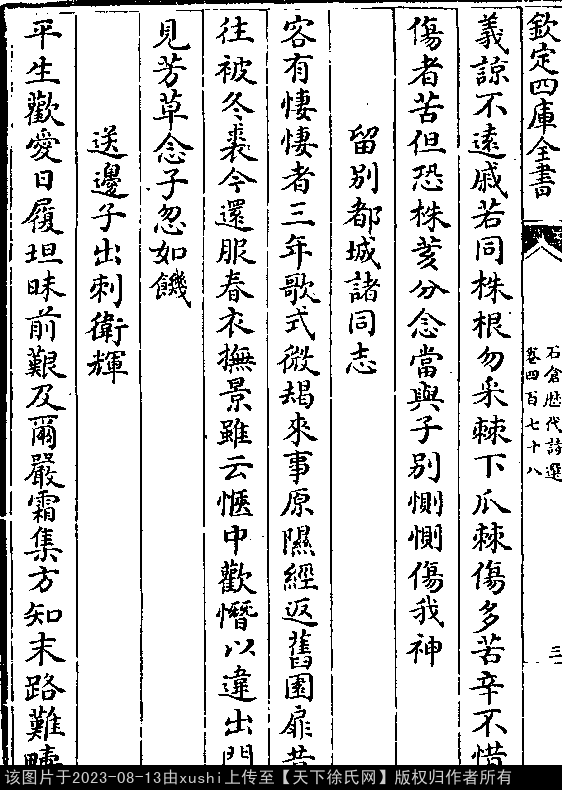 欽定四庫全書
石倉歴代詩選
卷四百七十八
三
義諒不遠戚若同株根勿采棘下瓜棘傷多苦辛不惜
傷者苦但恐株荄分念當與子别惻惻傷我神
留别都城諸同志
客有悽悽者三年歌式微朅來事原隰經返舊園扉昔
往被冬裘今還服春衣撫景雖云愜中歡憯以違出門
見芳草念子忽如饑
送邊子出刺衛輝
平生歡愛日履坦昧前艱及爾嚴霜集方知末路難
该图片于2023-08-13由xushi上传至【天下徐氏网】版权归作者所有